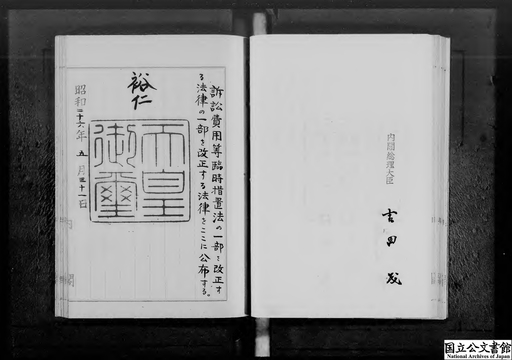 内閣総理大臣
吉田茂
訴訟費用等臨時措置法の一部を改正す
る法律の一部を改正する法律をここに公布する。
裕仁
天皇
御璽
昭和二十六年五月三十一日
国立公文書館
National Archives of Japan